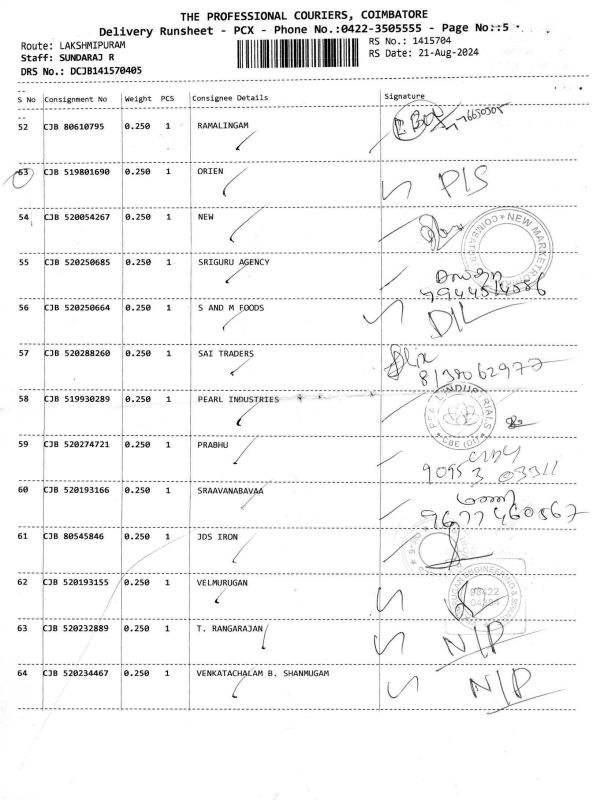 THE PROFESSIONAL COURIERS, COIMBATORE
Delivery Runsheet - PCX - Phone No.:0422-3505555 - Page No::5
Route: LAKSHMIPURAM
RS No.: 1415704
Staff: SUNDARAJ R
RS Date: 21-Aug-2024
DRS No.: DCJB141570405
S No Consignment No Weight PCS Consignee Details Signature
52 CJB 80610795 0.250 1 RAMALINGAM
53 CJB 519801690 0.250 1 ORIEN P/S
54 CJB 520054267 0.250 1 NEW
55 CJB 520250685 0.250 1 SRIGURU AGENCY
56 CJB 520250664 0.250 1 S AND M FOODS D/L
57 CJB 520288260 0.250 1 SAI TRADERS
8138062972
58 CJB 519930289 0.250 1 PEARL INDUSTRIES
59 CJB 520274721 0.250 1 PRABHU
90953 03311
60 CJB 520193166 0.250 1 SRAAVANABAVAA
9677460567
61 CJB 80545846 0.250 1 JDS IRON
62 CJB 520193155 0.250 1 VELMURUGAN
63 CJB 520232889 0.250 1 T. RANGARAJAN N/P
64 CJB 520234467 0.250 1 VENKATACHALAM B. SHANMUGAM N/P